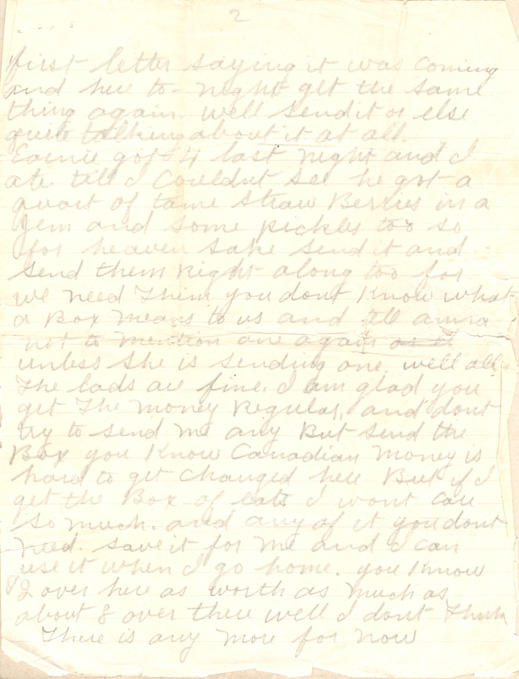 2
first letter saying it was coming
and here to-night get the same
thing again. well send it or else
quite talking about it at all.
Earnie got 4 last night and I
ate till I Couldnt see he got a
quart of tame Straw Berries in a
Jem and some pickles too so
for heaven sake send it and
send them Right along too for
we need Them you dont Know what
a Box Means to us and tell
not to mention one again
unless She is sending one. well all
The lads are fine. I am glad you
get The Money Regular, and dont
try to send me any But send the
Box you Know Canadian Money is
hard to get Changed here But if I
get the Box of eats I wont Care
So much. and any of it you dont
need. save it for me and I can
use it when I go home. you Know
2 over here as worth as much as
about 8 over there well I dont Think
There is any more for now